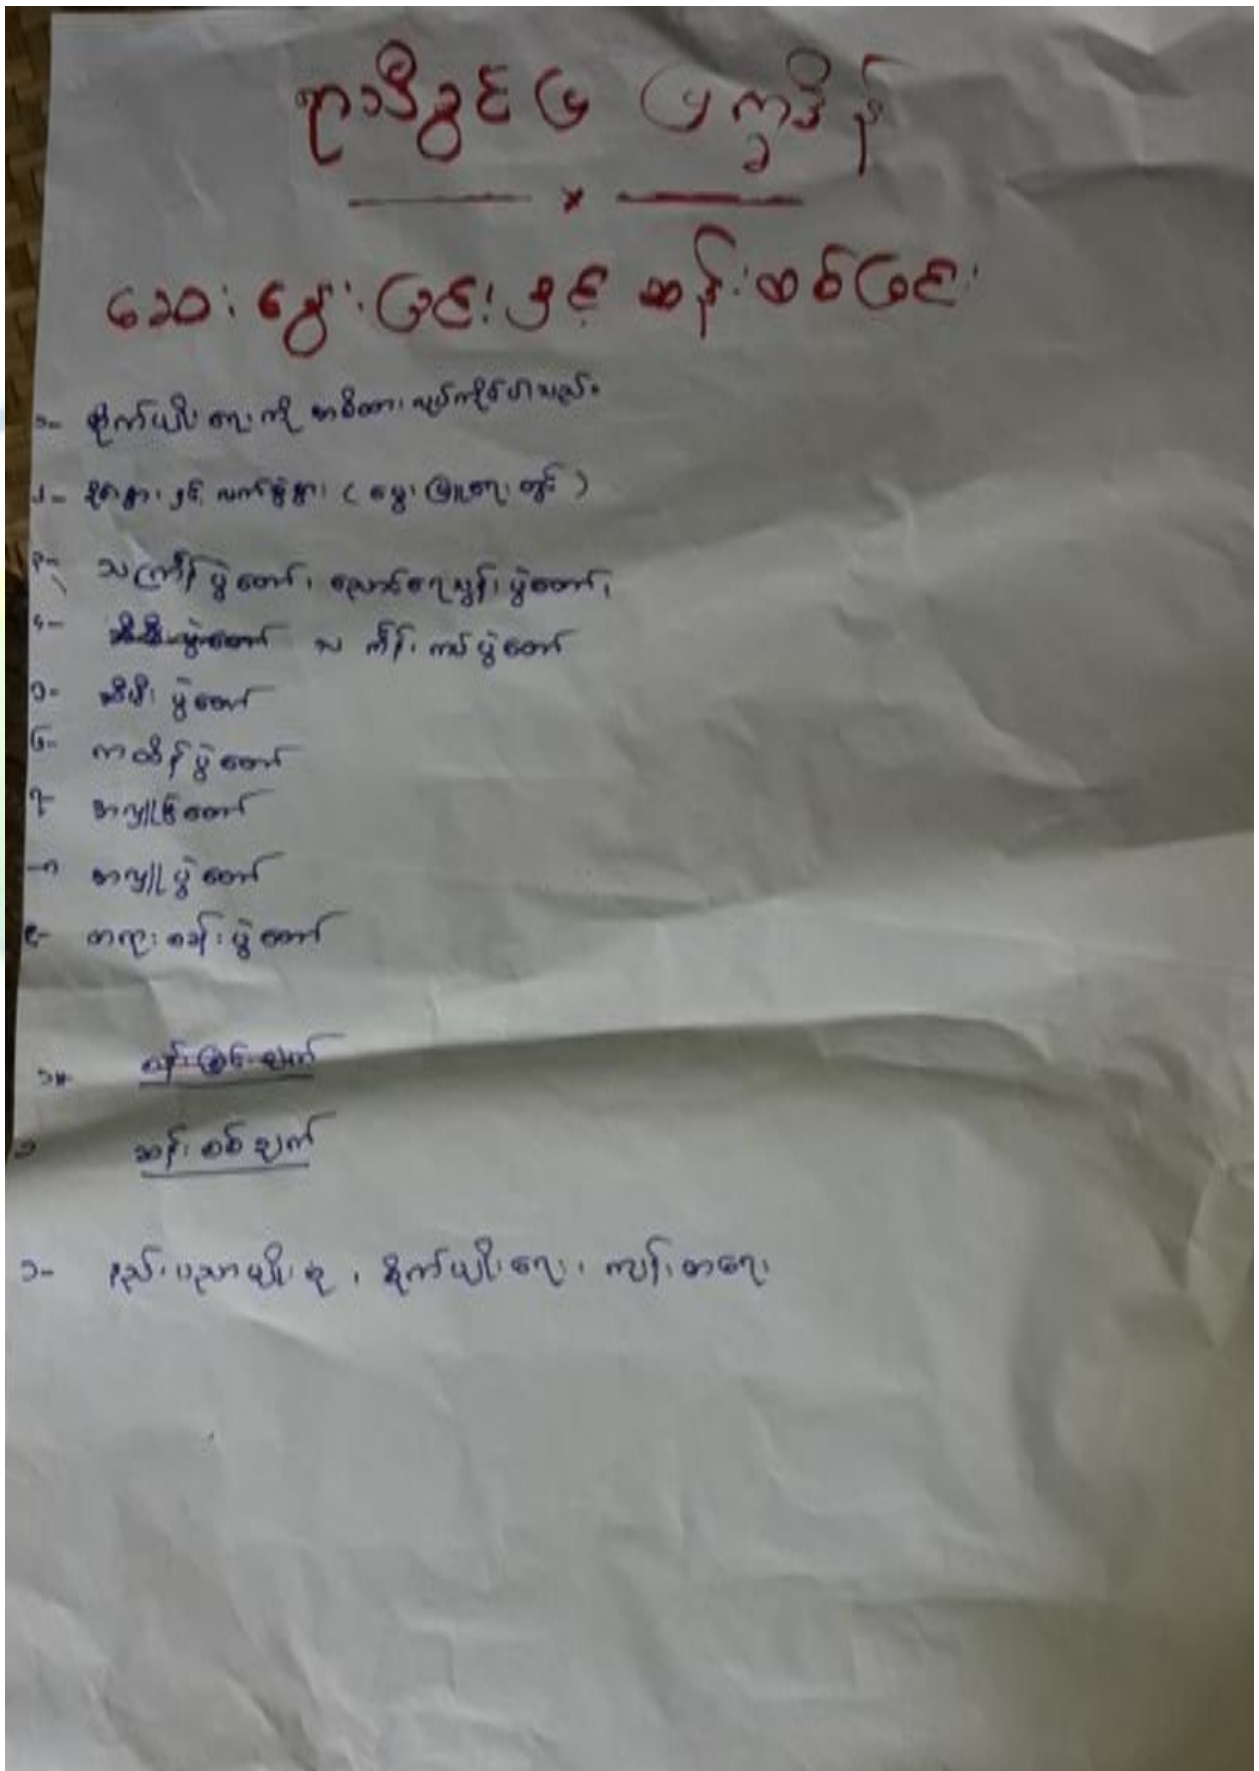 ရာသီခွင်ပြ ပြက္ခဒိန်
x
ဆွေးနွေးခြင်းနှင့် ဆန်းစစ်ခြင်း
၁- စိုက်ပျိုးရေးကို အဓိကထားလုပ်ကိုင်ပါသည်။
၂- နှင့် (မွေးမြူရေးတွင်)
၃- သင်္ကြန်ပွဲတော်၊ ညောင်ရေသွန်းပွဲတော်၊
၄- ဆီမီးပွဲတော် သင်္ကန်းကပ်ပွဲတော်
၅- ဆီမီးပွဲတော်
၆- ကထိန်ပွဲတော်
၇- အလှူပွဲတော်
၈- အလှူပွဲတော်
၉- တရားစခန်းပွဲတော်
ဆန်းစစ်ချက်
၁- နည်းပညာမျိုးစု၊ စိုက်ပျိုးရေး၊ ကျန်းမာရေး